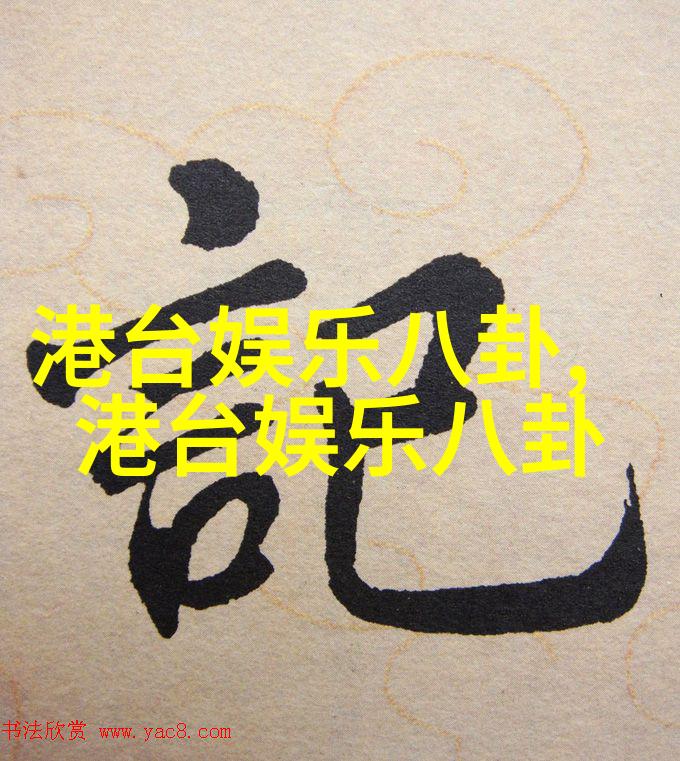 記
港台娱乐八卦,
港台娱乐八卦
书法欣赏 www.yac8.com